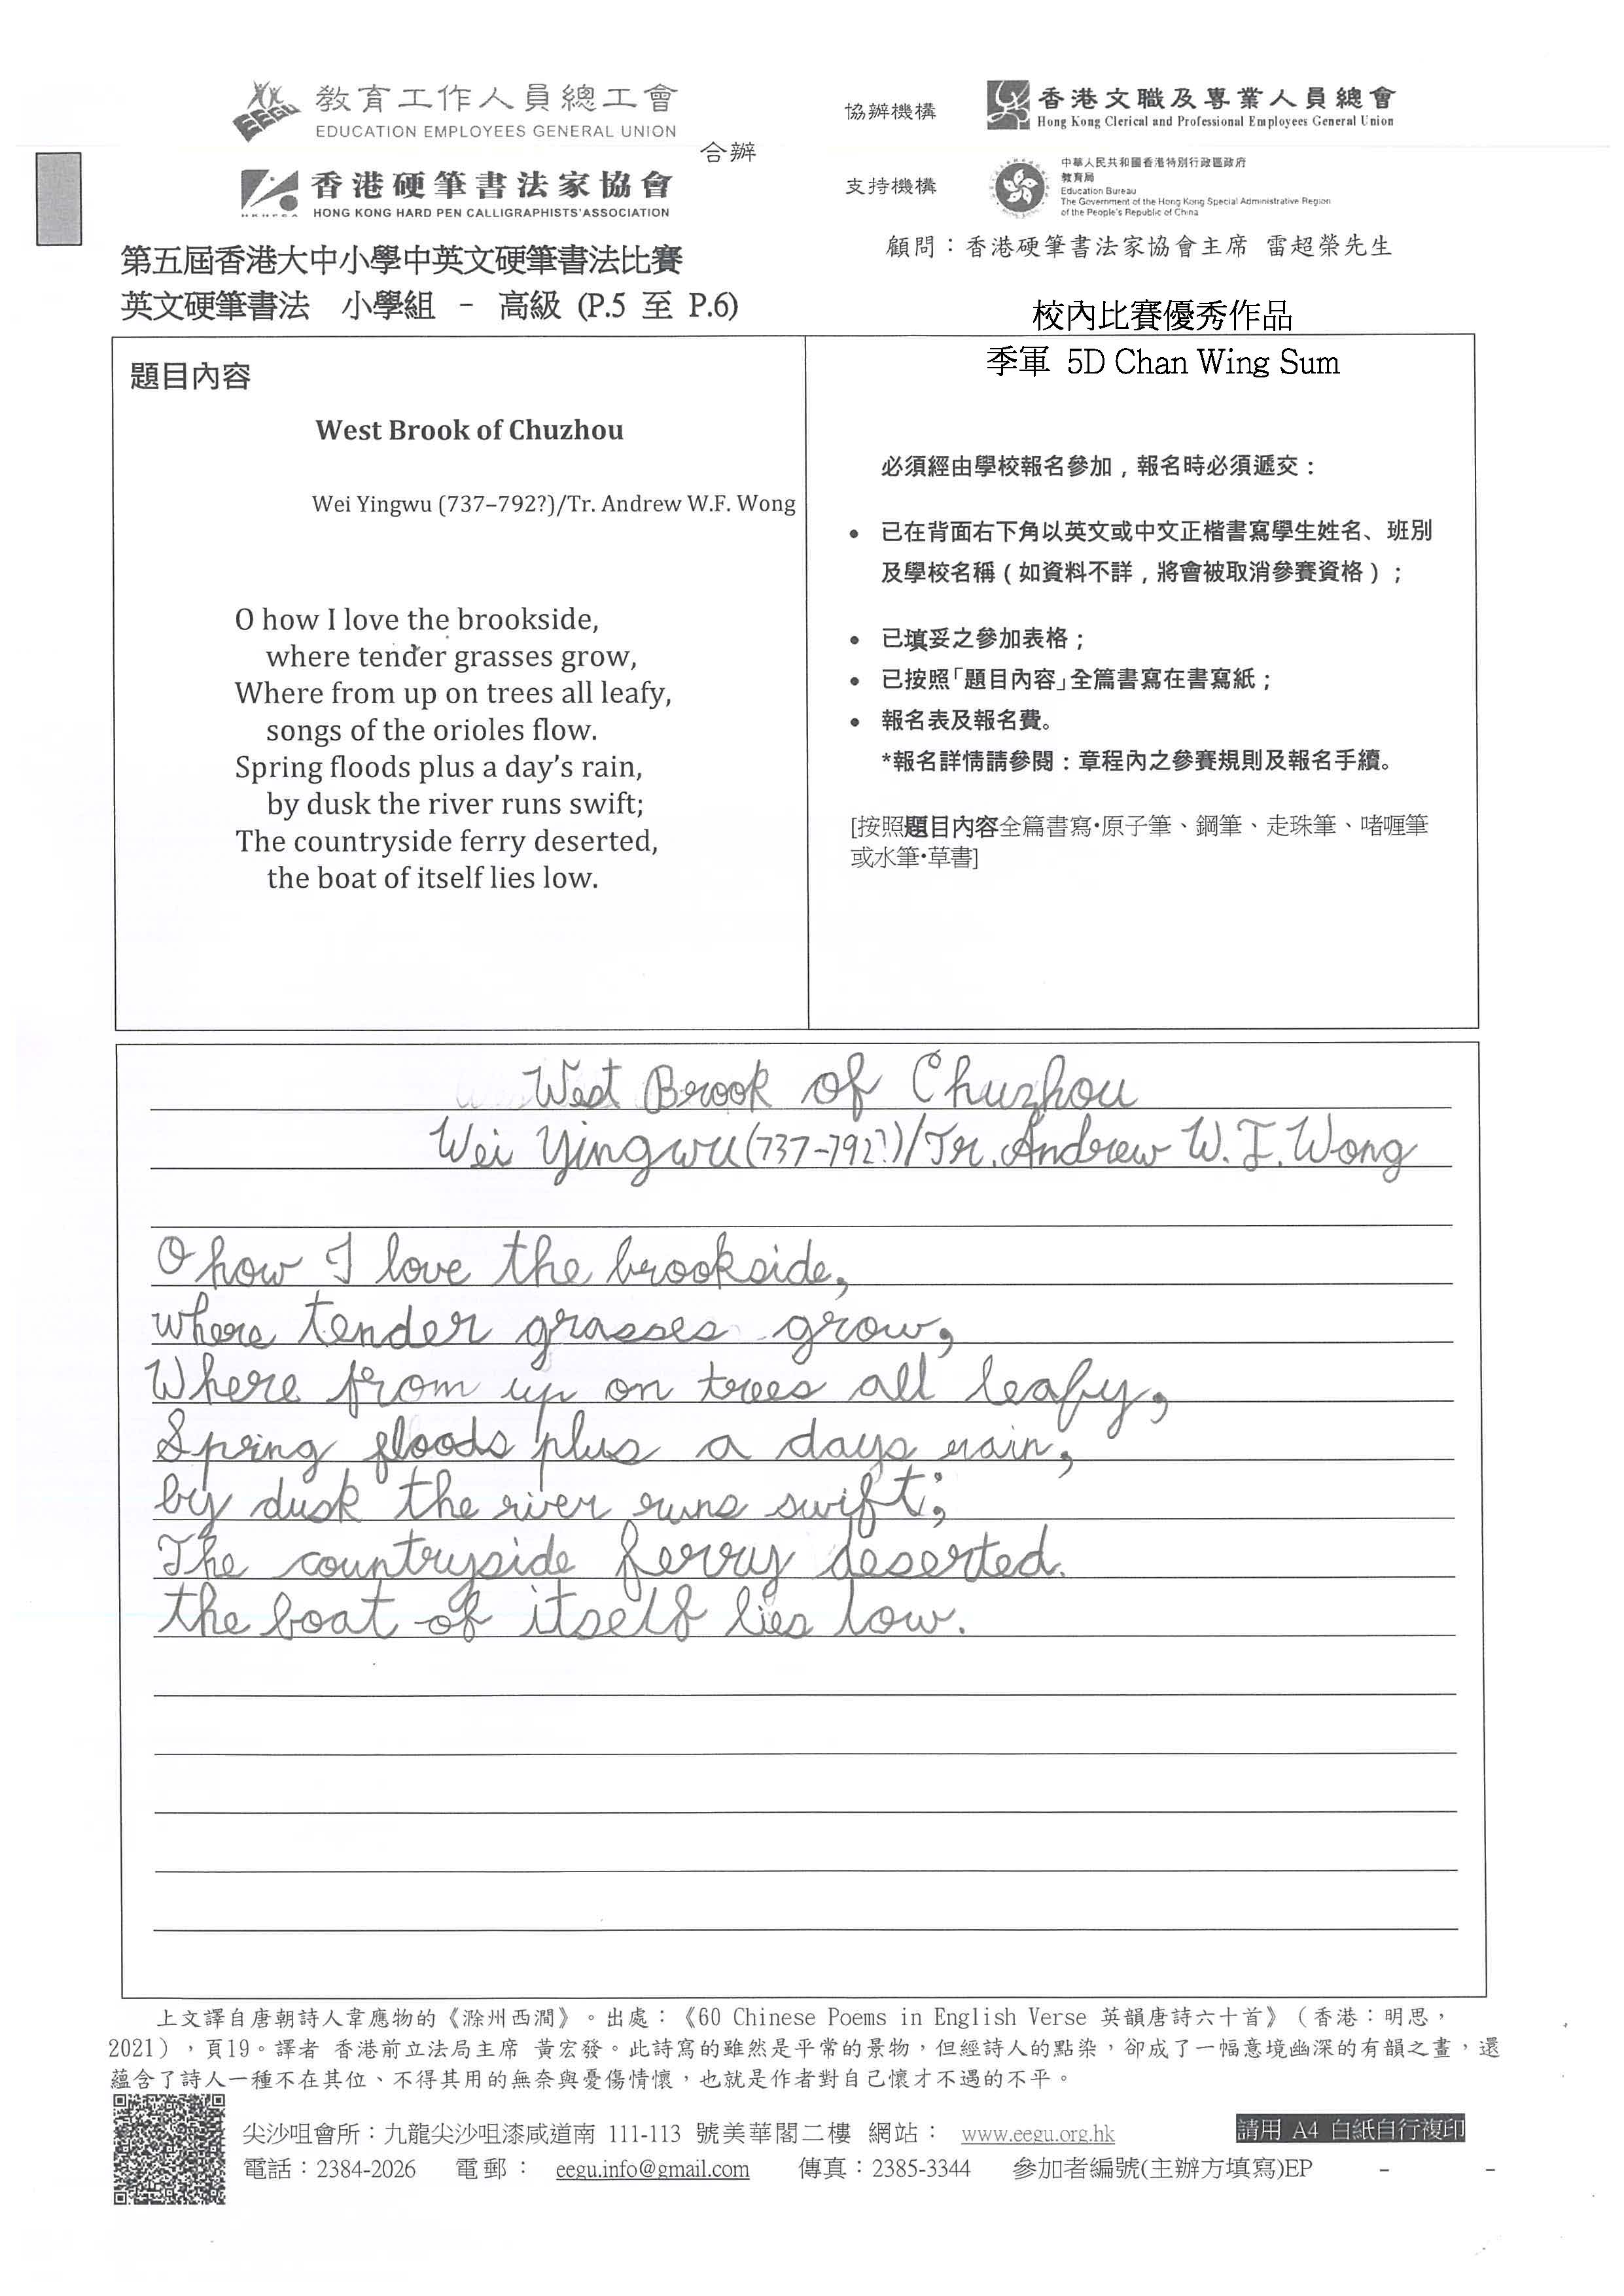 教育工作人員總工會
EDUCATION EMPLOYEES GENERAL UNION
合辦
香港硬筆書法家協會
HONG KONG HARD PEN CALLIGRAPHISTS'ASSOCIATION
協辦機構
香港文職及專業人員總會
Hong Kong Clerical and Professional Employees General Union
支持機構
中華人民共和國香港特別行政區政府
教育局
Education Bureau
The Government of the Hong Kong Special Administrative Region
of the People's Republic of China
第五屆香港大中小學中英文硬筆書法比賽
英文硬筆書法 小學組 - 高級 (P.5 至 P.6)
顧問：香港硬筆書法家協會主席 雷超榮先生
校內比賽優秀作品
季軍 5D Chan Wing Sum
題目內容
West Brook of Chuzhou
Wei Yingwu (737–792?)/Tr. Andrew W.F. Wong
O how I love the brookside,
where tender grasses grow,
Where from up on trees all leafy,
songs of the orioles flow.
Spring floods plus a day's rain,
by dusk the river runs swift;
The countryside ferry deserted,
the boat of itself lies low.
必須經由學校報名參加，報名時必須遞交：
• 已在背面右下角以英文或中文正楷書寫學生姓名、班別
及學校名稱（如資料不詳，將會被取消參賽資格）；
• 已填妥之參加表格；
• 已按照「題目內容」全篇書寫在書寫紙；
• 報名表及報名費。
*報名詳情請參閱：章程內之參賽規則及報名手續。
[按照題目內容全篇書寫•原子筆、鋼筆、走珠筆、啫喱筆
或水筆•草書]
West Brook of Chuzhou
Wei Yingwu (737-792?)/Tr. Andrew W. F. Wong
O how I love the brookside,
where tender grasses grow,
Where from up on trees all leafy,
Spring floods plus a days rain,
by dusk the river runs swift;
The countryside ferry deserted.
the boat of itself lies low.
上文譯自唐朝詩人韋應物的《滁州西澗》。出處：《60 Chinese Poems in English Verse 英韻唐詩六十首》（香港：明思，
2021），頁19。譯者 香港前立法局主席 黃宏發。此詩寫的雖然是平常的景物，但經詩人的點染，卻成了一幅意境幽深的有韻之畫，還
蘊含了詩人一種不在其位、不得其用的無奈與憂傷情懷，也就是作者對自己懷才不遇的不平。
尖沙咀會所：九龍尖沙咀漆咸道南 111-113 號美華閣二樓 網站： www.eegu.org.hk
請用 A4 白紙自行複印
電話：2384-2026 電郵： eegu.info@gmail.com 傳真：2385-3344 參加者編號(主辦方填寫)EP - -